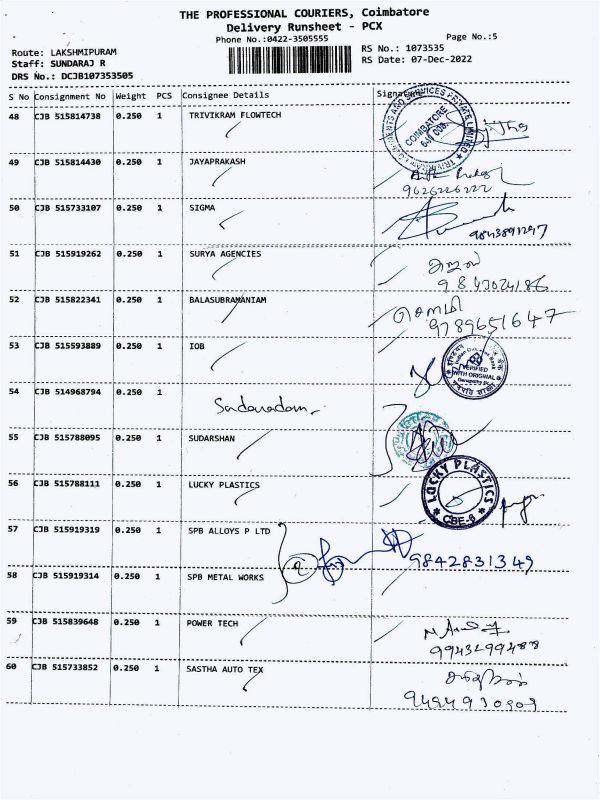 THE PROFESSIONAL COURIERS, Coimbatore
Delivery Runsheet - PCX
Phone No.:0422-3505555
Page No.:5
Route: LAKSHMIPURAM
RS No.: 1073535
Staff: SUNDARAJ R
RS Date: 07-Dec-2022
DRS No.: DCJB107353505
S No Consignment No Weight PCS Consignee Details Signature
48 CJB 515814738 0.250 1 TRIVIKRAM FLOWTECH
COIMBATORE
49 CJB 515814430 0.250 1 JAYAPRAKASH
9626226222
50 CJB 515733107 0.250 1 SIGMA
9843891297
51 CJB 515919262 0.250 1 SURYA AGENCIES
9843024186
52 CJB 515822341 0.250 1 BALASUBRAMANIAM
9789651647
53 CJB 515593889 0.250 1 IOB
VERIFIED
WITH ORIGINAL
54 CJB 514968794 0.250 1
55 CJB 515788095 0.250 1 SUDARSHAN
56 CJB 515788111 0.250 1 LUCKY PLASTICS
LUCKY PLASTICS
CBE-6
57 CJB 515919319 0.250 1 SPB ALLOYS P LTD
9842831349
58 CJB 515919314 0.250 1 SPB METAL WORKS
59 CJB 515839648 0.250 1 POWER TECH
9943299488
60 CJB 515733852 0.250 1 SASTHA AUTO TEX
9494930909